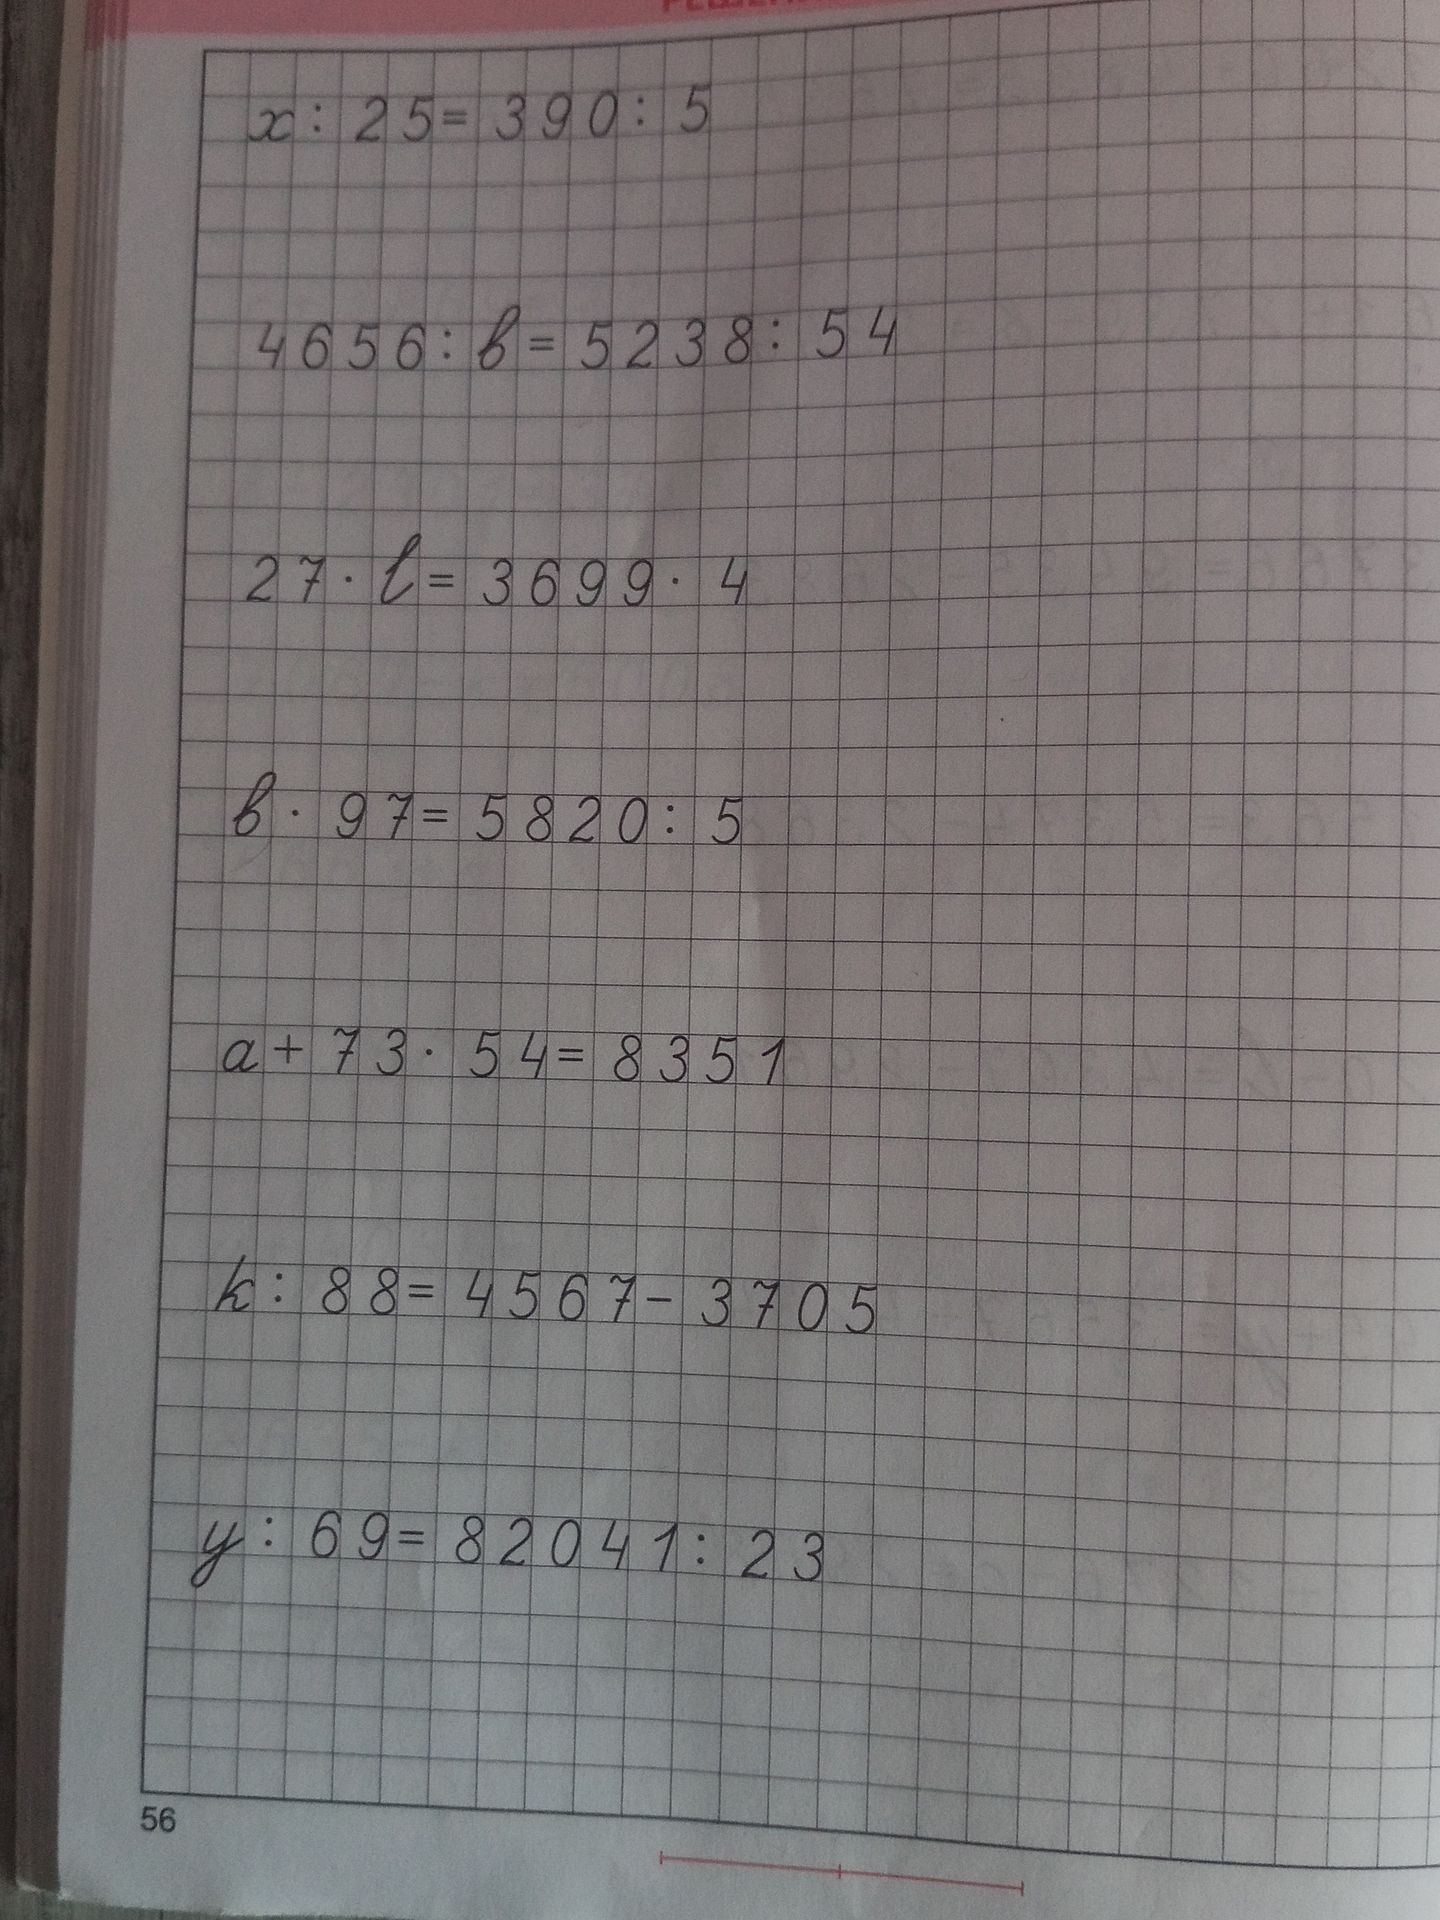 x : 25 = 390 : 5
4656 : в = 5238 : 54
27 · l = 3699 · 4
в · 97 = 5820 : 5
a + 73 · 54 = 8351
k : 88 = 4567 − 3705
y : 69 = 82041 : 23
56